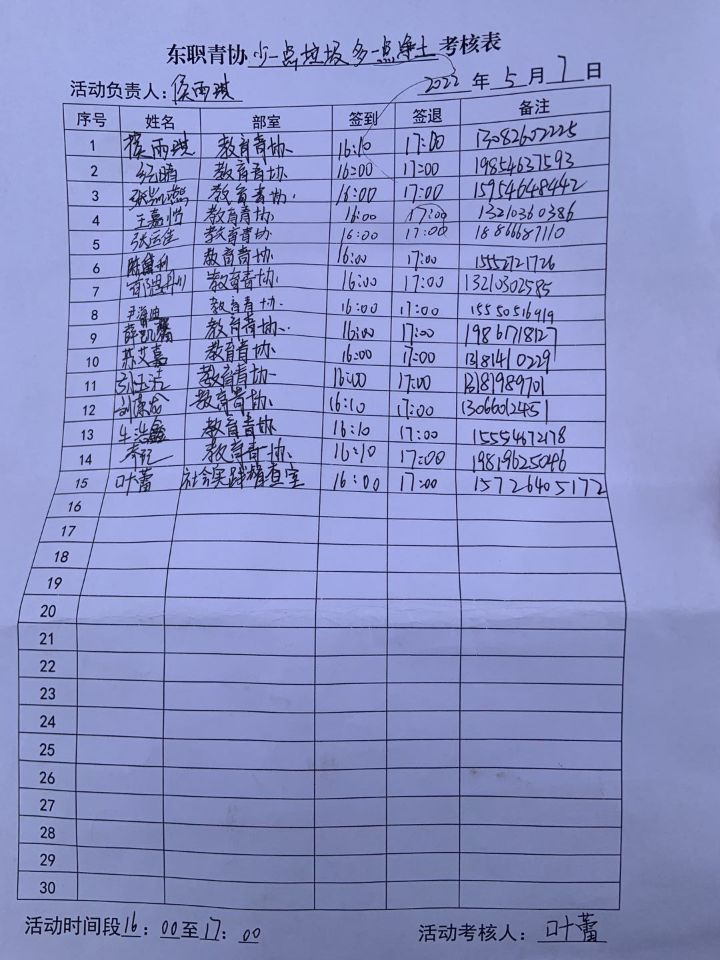 东职青协 少一点垃圾多一点净土 考核表
活动负责人：侯雨琪 2022 年 5 月 7 日
序号 姓名 部室 签到 签退 备注
1 侯雨琪 教育青协 16:10 17:00 13082602225
2 教育青协 16:00 17:00 19854637593
3 教育青协 16:00 17:00 15954648442
4 王嘉怡 教育青协 16:00 17:00 13210360386
5 教育青协 16:00 17:00 18866687110
6 教育青协 16:00 17:00 15552721726
7 教育青协 16:00 17:00 13210302585
8 教育青协 16:00 17:00 15550516919
9 薛凯馨 教育青协 16:00 17:00 19861718127
10 苏艾嘉 教育青协 16:00 17:00 13181410229
11 教育青协 16:00 17:00 13181989701
12 教育青协 16:10 17:00 13066012451
13 教育青协 16:10 17:00 15554672178
14 教育青协 16:10 17:00 19819625046
15 叶蕾 社会实践稽查室 16:00 17:00 15726405172
16
17
18
19
20
21
22
23
24
25
26
27
28
29
30
活动时间段16：00至17：00 活动考核人：叶蕾